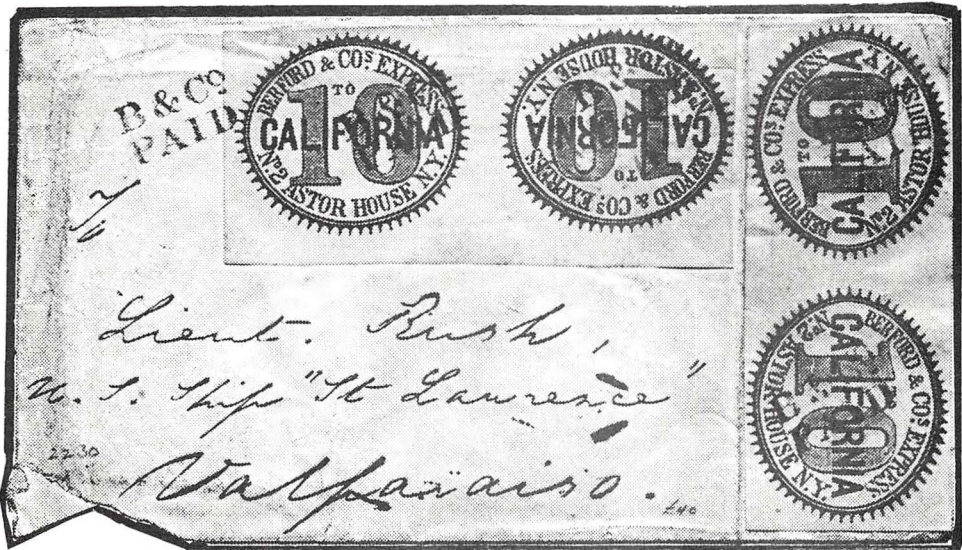 B & Co
PAID
BERFORD & COS EXPRESS
TO
10
CALIFORNIA
No2 ASTOR HOUSE N.Y.
BERFORD & COS EXPRESS
TO
10
CALIFORNIA
No2 ASTOR HOUSE N.Y.
BERFORD & COS EXPRESS
TO
10
CALIFORNIA
No2 ASTOR HOUSE N.Y.
BERFORD & COS EXPRESS
TO
10
CALIFORNIA
No2 ASTOR HOUSE N.Y.
Lieut. Rush,
U. S. Ship "St Lawrence"
2230
Valparaiso.
£40